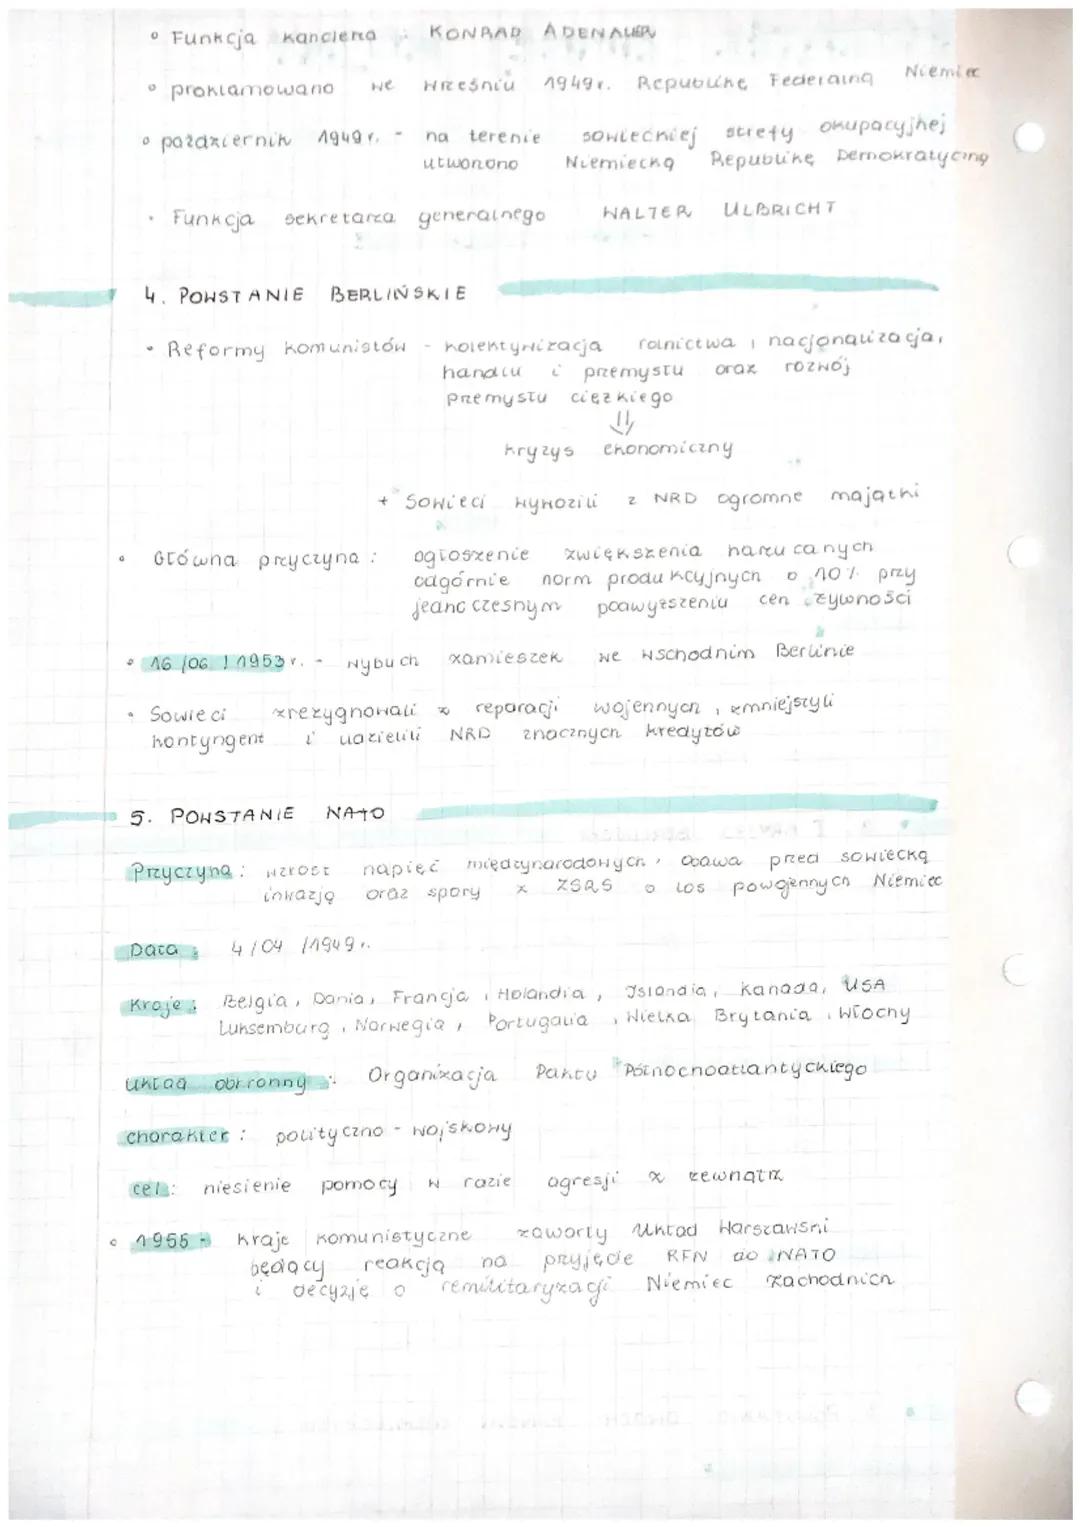 ° Funkcja kanclerza : KONRAD ADENAUER
° proklamowano we wrześniu 1949r. Republikę Federalną Niemiec
° październik 1949 r. - na terenie sowieckiej strefy okupacyjnej
utworzono Niemiecką Republikę Demokratyczną
• Funkcja sekretarza generalnego WALTER ULBRICHT
4. POWSTANIE BERLIŃSKIE
• Reformy komunistów - kolektywizacja rolnictwa, nacjonalizacja,
handlu i przemysłu oraz rozwój
przemysłu ciężkiego
⇓
kryzys ekonomiczny
+ Sowieci wywozili z NRD ogromne majątki
• Główna przyczyna : ogłoszenie zwiększenia narzucanych
odgórnie norm produkcyjnych o 10% przy
jednoczesnym podwyższeniu cen żywności
• 16 /06 / 1953 r. - wybuch zamieszek we wschodnim Berlinie
• Sowieci zrezygnowali z reparacji wojennych, zmniejszyli
kontyngent i udzielili NRD znacznych kredytów
5. POWSTANIE NATO
Przyczyna : wzrost napięć międzynarodowych, obawa przed sowiecką
inwazją oraz spory z ZSRS o los powojennych Niemiec
Data : 4 / 04 / 1949 r.
Kraje : Belgia, Dania, Francja, Holandia, Islandia, Kanada, USA
Luksemburg, Norwegia, Portugalia, Wielka Brytania, Włochy
układ obronny : Organizacja Paktu Północnoatlantyckiego
charakter : polityczno - wojskowy
cel : niesienie pomocy w razie agresji z zewnątrz
° 1955 - kraje komunistyczne zawarły Układ Warszawski
będący reakcją na przyjęcie RFN do NATO
i decyzję o remilitaryzacji Niemiec Zachodnich